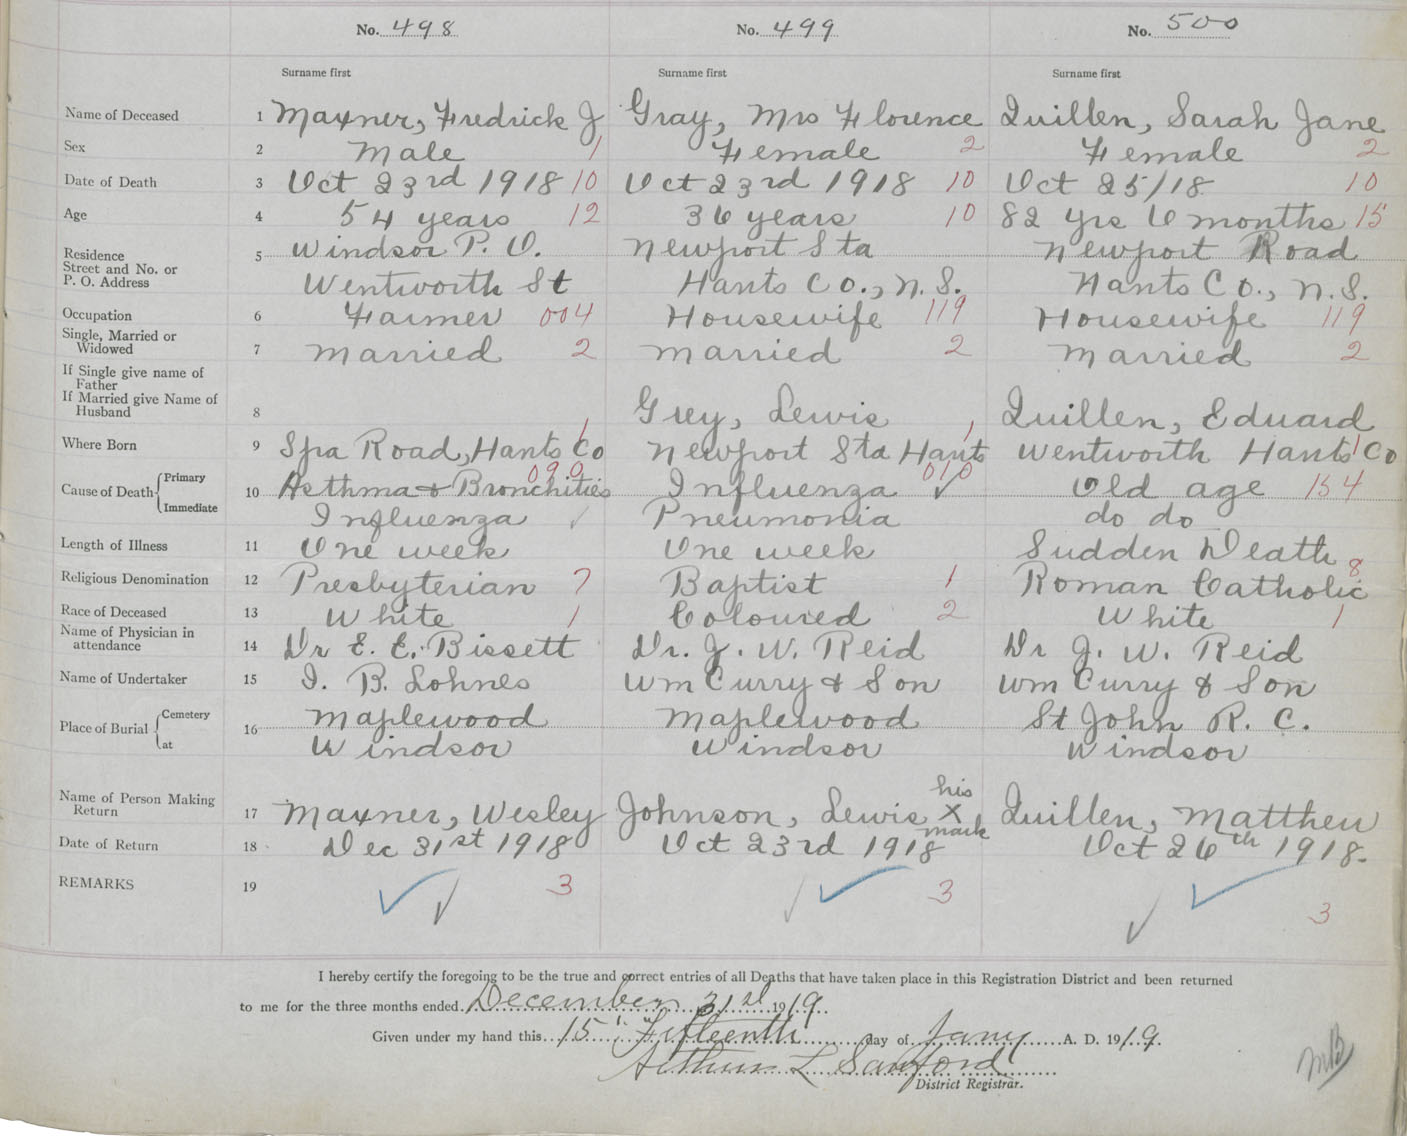 No. 498 No. 499 No. 500
Surname first Surname first Surname first
Name of Deceased 1 Maxner, Fredrick J Gray, Mrs Florence Quillen, Sarah Jane
Sex 2 Male 1 Female 2 Female 2
Date of Death 3 Oct 23rd 1918 10 Oct 23rd 1918 10 Oct 25/18 10
Age 4 54 years 12 36 years 10 82 yrs 6 months 15
Residence 5 Windsor P. O. Newport Sta Newport Road
Street and No. or
P. O. Address Wentworth St Hants Co., N. S. Hants Co., N. S.
Occupation 6 Farmer 004 Housewife 119 Housewife 119
Single, Married or
Widowed 7 Married 2 Married 2 Married 2
If Single give name of
Father
If Married give Name of
Husband 8 Grey, Lewis Quillen, Eduard
Where Born 9 Spa Road, Hants Co 1 Newport Sta Hants 1 Wentworth Hants Co 1
Cause of Death Primary 10 Asthma & Bronchities 090 Influenza 010 ✓ Old age 154
Immediate Influenza ✓ Pneumonia do do
Length of Illness 11 One week One week Sudden Death
Religious Denomination 12 Presbyterian 7 Baptist 1 Roman Catholic 8
Race of Deceased 13 White 1 Coloured 2 White 1
Name of Physician in
attendance 14 Dr E. E. Bissett Dr. J. W. Reid Dr J. W. Reid
Name of Undertaker 15 I. B. Lohnes Wm Curry & Son Wm Curry & Son
Place of Burial Cemetery 16 Maplewood Maplewood St John R. C.
at Windsor Windsor Windsor
Name of Person Making
Return 17 Maxner, Wesley Johnson, Lewis his X mark Quillen, Matthew
Date of Return 18 Dec 31st 1918 Oct 23rd 1918 Oct 26th 1918.
REMARKS 19 ✓ ✓ 3 ✓ ✓ 3 ✓ ✓ 3
I hereby certify the foregoing to be the true and correct entries of all Deaths that have taken place in this Registration District and been returned
to me for the three months ended December 31st 1919.
Given under my hand this 15 "Fifteenth" day of Jany A. D. 1919.
Arthur L Sanford
District Registrar.
MB